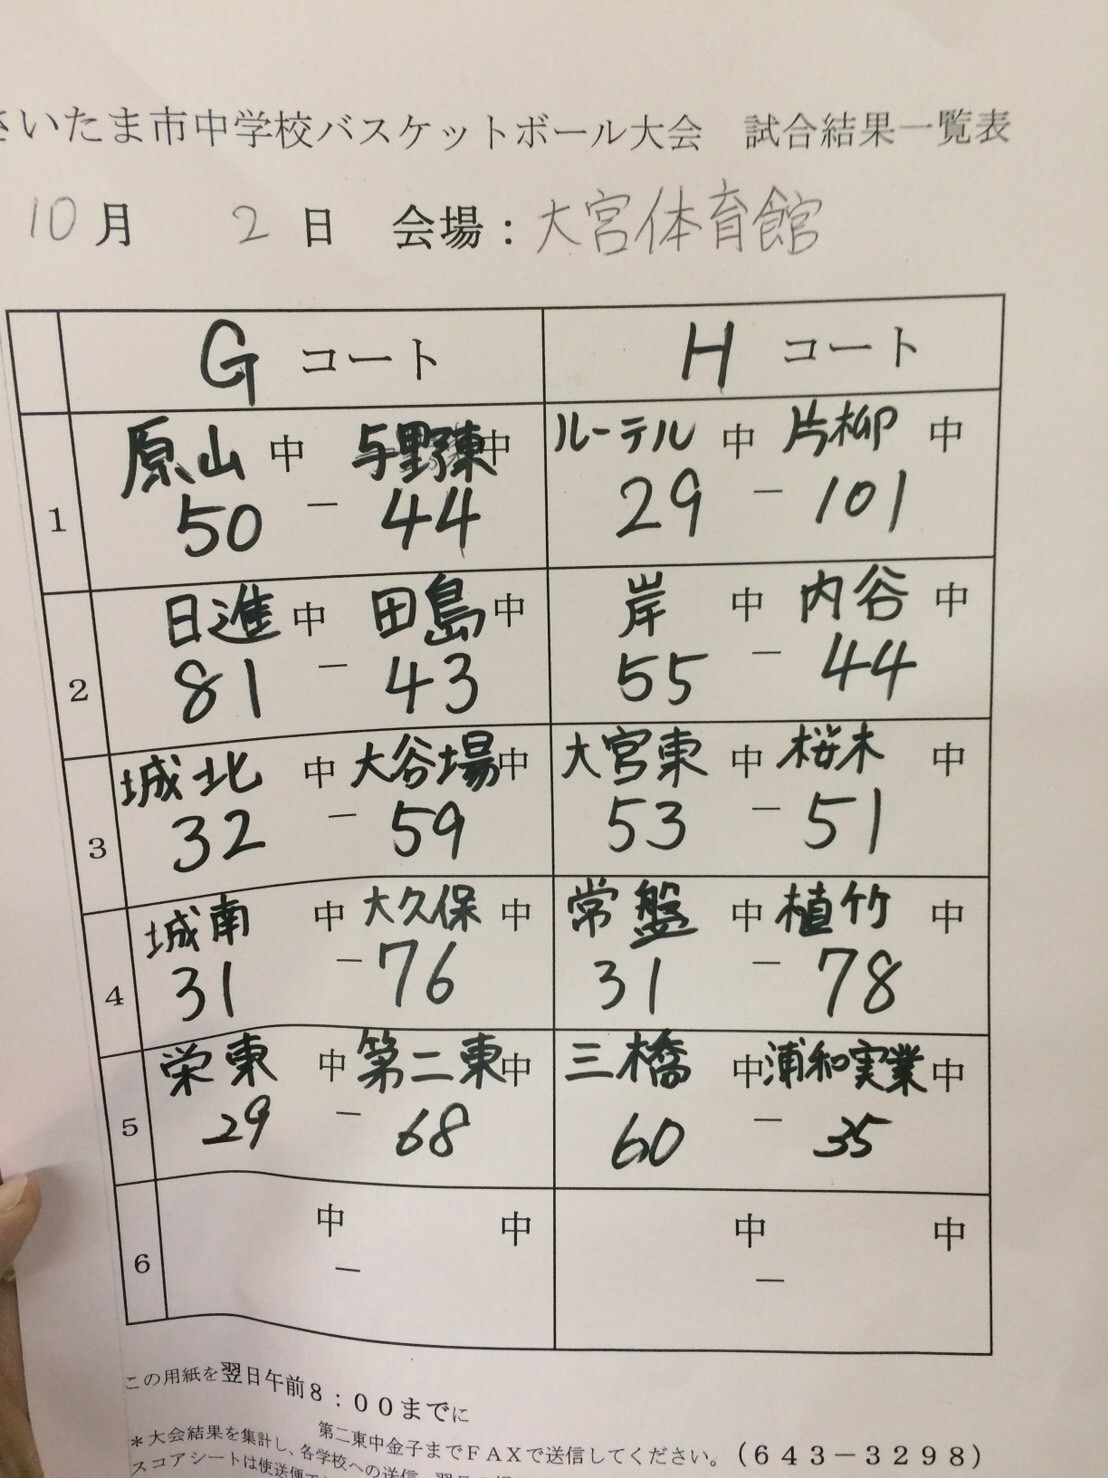 さいたま市中学校バスケットボール大会　試合結果一覧表
10月　2日　会場：大宮体育館
Gコート　Hコート
1　原山中　与野東中　ルーテル中　片柳中
50－44　29－101
2　日進中　田島中　岸中　内谷中
81－43　55－44
3　城北中　大谷場中　大宮東中　桜木中
32－59　53－51
4　城南中　大久保中　常盤中　植竹中
31－76　31－78
5　栄東中　第二東中　三橋中　浦和実業中
29－68　60－35
6　中　中　中　中
－　－
この用紙を翌日午前8：00までに
第二東中金子までFAXで送信してください。（643－3298）
＊大会結果を集計し、各学校への送信、翌日の
スコアシートは使送便で